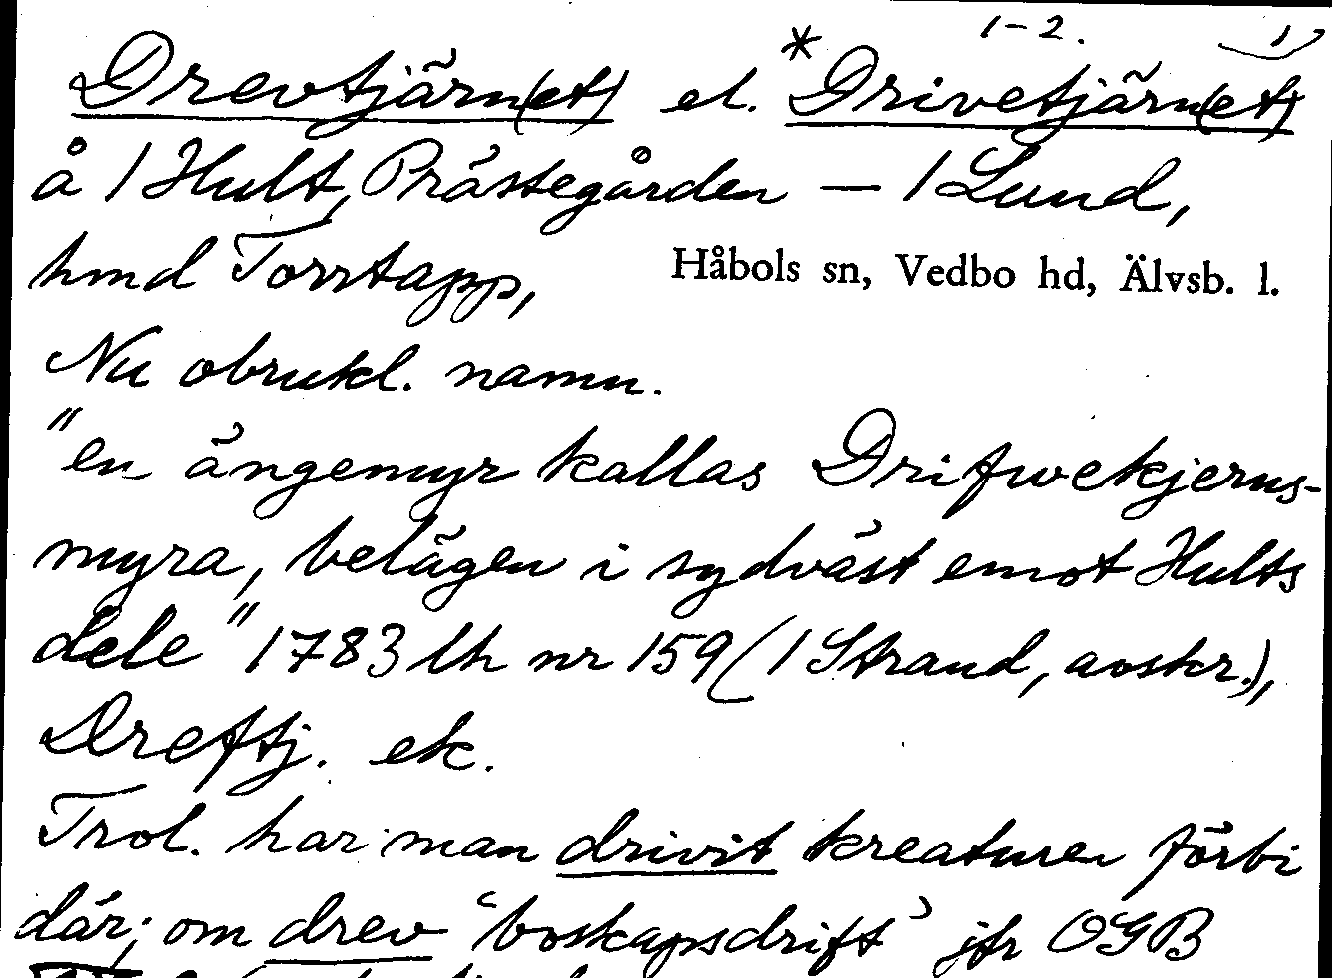 1-2. 1)
Drevtjärn(et) el. *Drivetjärn(et)
å 1 Hult, Prästegården — 1 Lund,
hmd Torrtapp, Håbols sn, Vedbo hd, Älvsb. l.
Nu obrukl. namn.
"en ängemyr kallas Drifwekjerns-
myra, belägen i sydväst emot Hults
dele" 1783 lh nr 159 (1 Strand, avskr.),
Dreftj. ek.
Trol. har man drivit kreaturen förbi
där; om drev 'boskapsdrift' jfr OGB